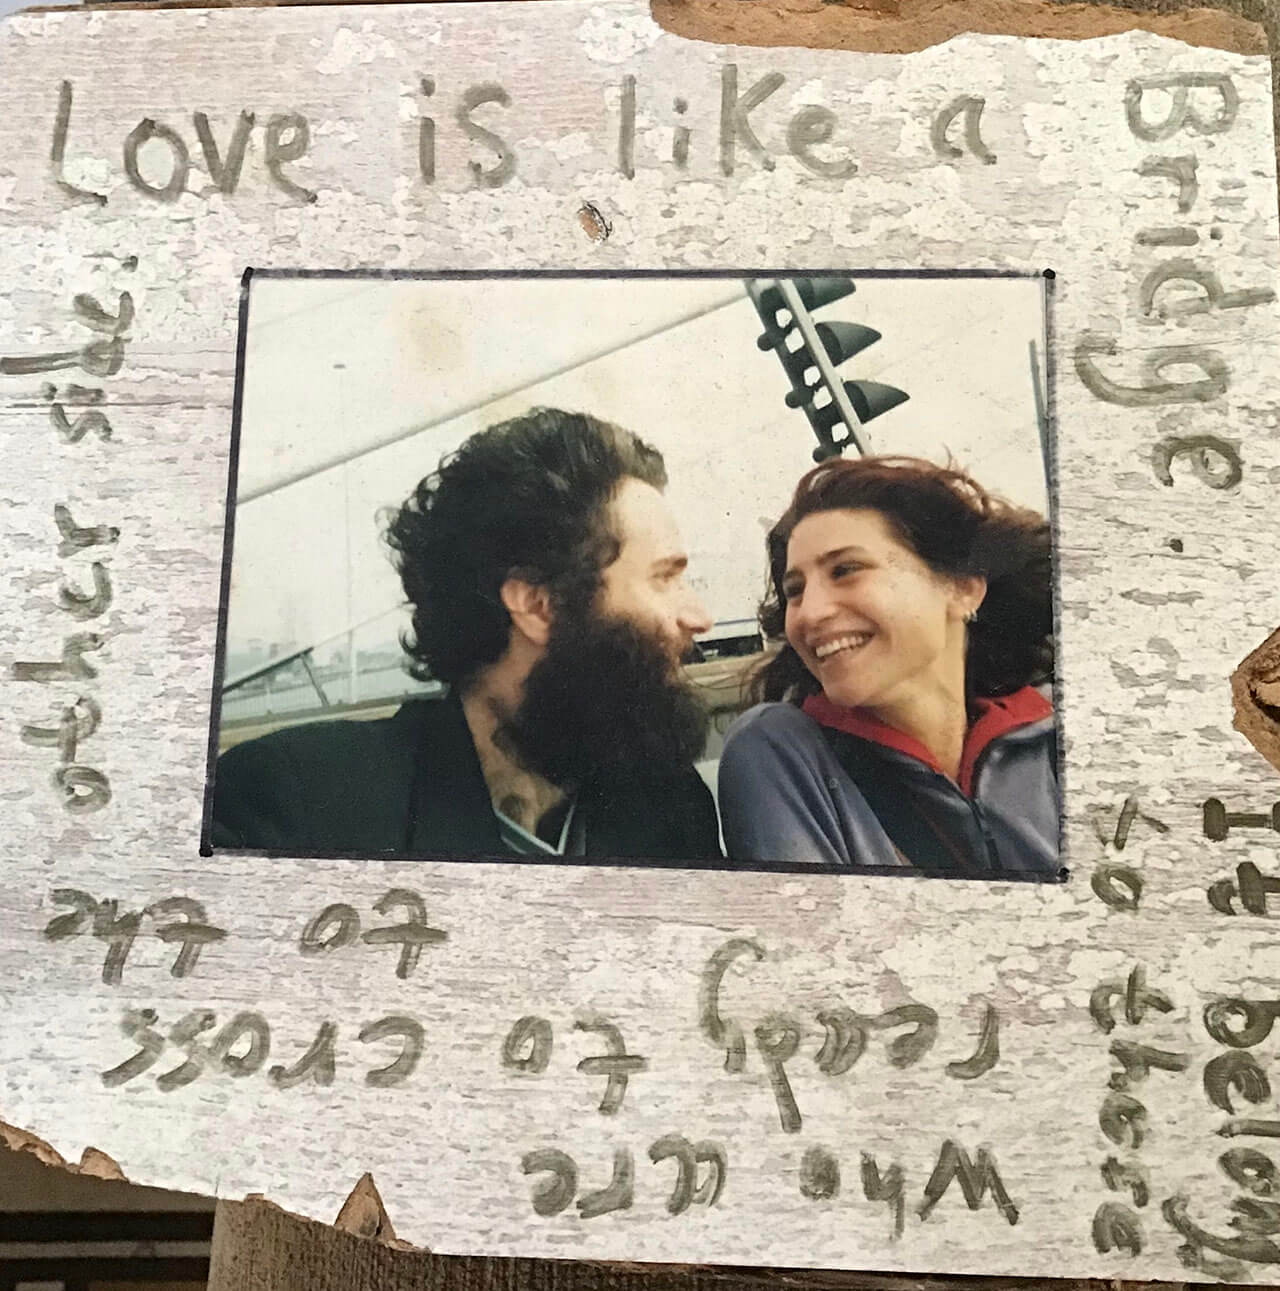 Love is like a
Bridge.
It belong
to those
Who are
ready to cross
to the
other side.